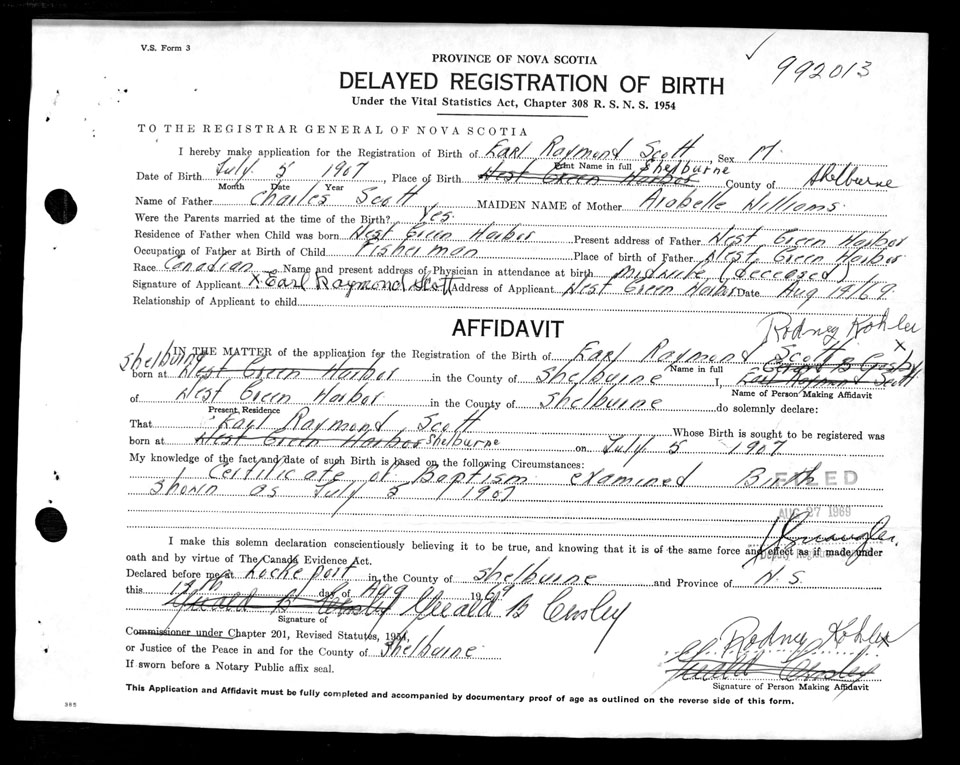 V.S. Form 3
992013
PROVINCE OF NOVA SCOTIA
DELAYED REGISTRATION OF BIRTH
Under the Vital Statistics Act, Chapter 308 R. S. N. S. 1954
TO THE REGISTRAR GENERAL OF NOVA SCOTIA
I hereby make application for the Registration of Birth of Earl Raymond Scott, Sex M
Print Name in full Shelburne
Date of Birth July 5 1907, Place of Birth West Green Harbor County of Shelburne
Month Date Year
Name of Father Charles Scott MAIDEN NAME of Mother Arabelle Williams
Were the Parents married at the time of the Birth? Yes.
Residence of Father when Child was born West Green Harbor Present address of Father West Green Harbor
Occupation of Father at Birth of Child Fisherman Place of birth of Father West Green Harbor
Race Canadian Name and present address of Physician in attendance at birth midwife (deceased)
Signature of Applicant X Earl Raymond Scott Address of Applicant West Green Harbor Date Aug 19/69
Relationship of Applicant to child
Rodney Kohler
AFFIDAVIT
X
IN THE MATTER of the application for the Registration of the Birth of Earl Raymond Scott
Name in full
Shelburne
born at West Green Harbor in the County of Shelburne I, Earl Raymond Scott
Name of Person Making Affidavit
of West Green Harbor in the County of Shelburne do solemnly declare:
Present Residence
That Earl Raymond Scott Whose Birth is sought to be registered was
born at West Green Harbor Shelburne on July 5 1907
My knowledge of the fact and date of such Birth is based on the following Circumstances:
Certificate of Baptism examined Birth
FILED
shown as July 5 1907
AUG 27 1969
I make this solemn declaration conscientiously believing it to be true, and knowing that it is of the same force and effect as if made under
oath and by virtue of The Canada Evidence Act.
Declared before me at Lockeport in the County of Shelburne and Province of N.S.
this day of Aug 1969
Signature of
Commissioner under Chapter 201, Revised Statutes, 1954,
or Justice of the Peace in and for the County of Shelburne
Rodney Kohler
If sworn before a Notary Public affix seal.
Signature of Person Making Affidavit
This Application and Affidavit must be fully completed and accompanied by documentary proof of age as outlined on the reverse side of this form.